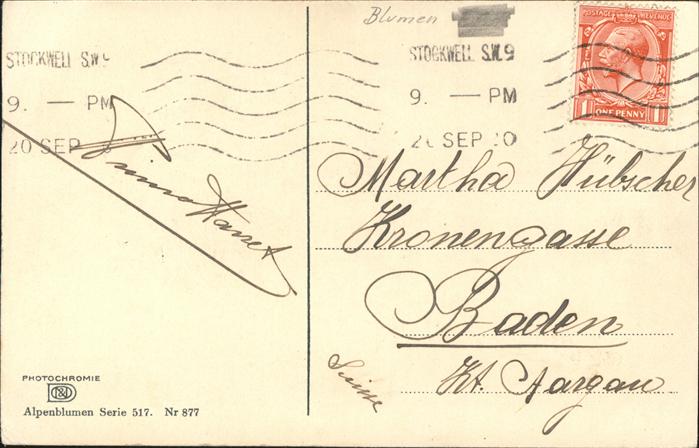 Blumen
STOCKWELL S.W.9
9. — PM
20 SEP
STOCKWELL S.W.9
9. — PM
20 SEP 20
POSTAGE REVENUE
1 ONE PENNY 1
Martha Hübscher
Kronengasse
Baden
Kt. Aargau
Suisse
PHOTOCHROMIE
Alpenblumen Serie 517. Nr 877